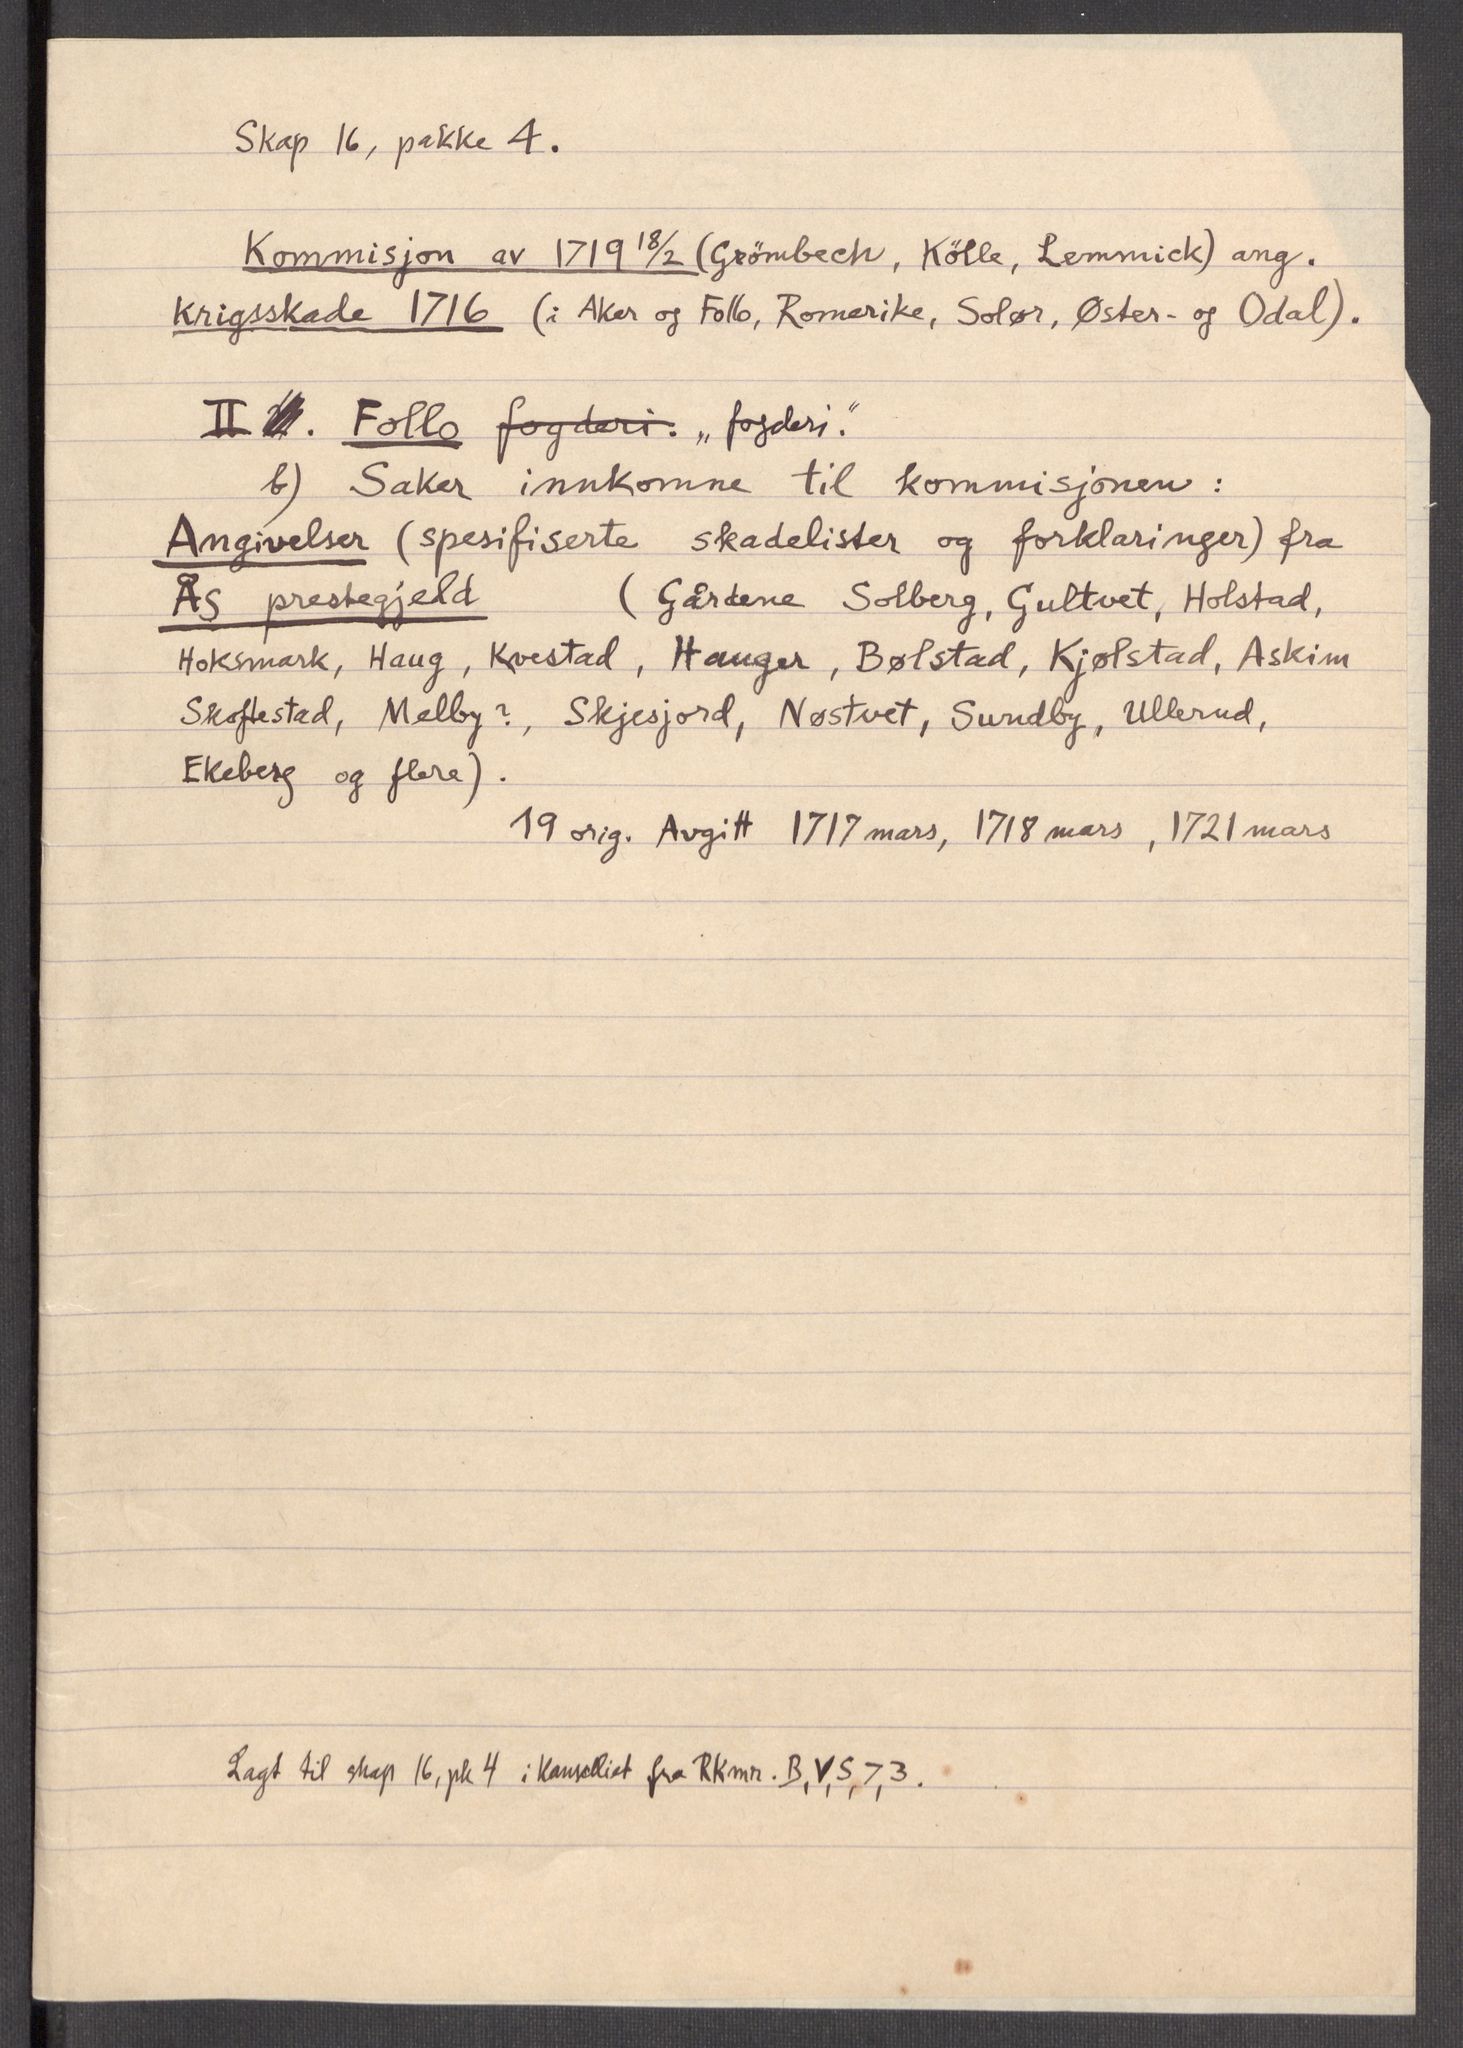 Skap 16, pakke 4.
Kommisjon av 1719 18/2 (Grömbech, Kölle, Lemmick) ang.
Krigsskade 1716 (i Aker og Follo, Romerike, Solør, Øster- og Odal).
II . Follo fogderi. „fogderi."
b) Saker innkomne til kommisjonen :
Angivelser (spesifiserte skadelister og forklaringer) fra
Ås prestegjeld (Gårdene Solberg, Gultvet, Holstad,
Hoksmark, Haug, Kvestad, Hauger, Bølstad, Kjølstad, Askim
Skoftestad, Melby?, Skjesjord, Nøstvet, Sundby, Ullerud,
Ekeberg og flere).
19 orig. Avgitt 1717 mars, 1718 mars, 1721 mars
Lagt til skap 16, pk 4 i Kanselliet fra RKmr. B, V, S, 7, 3.